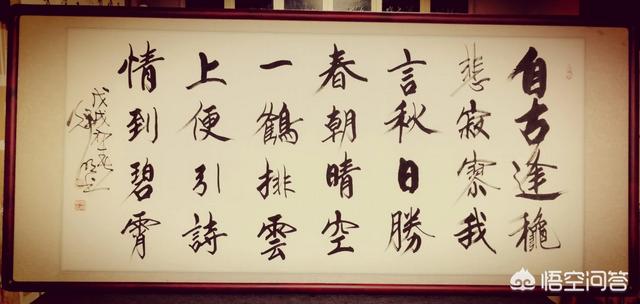 自古逢穐
悲寂寥我
言秋日勝
春朝晴空
一鶴排雲
上便引詩
情到碧霄
戊戌
悟空问答